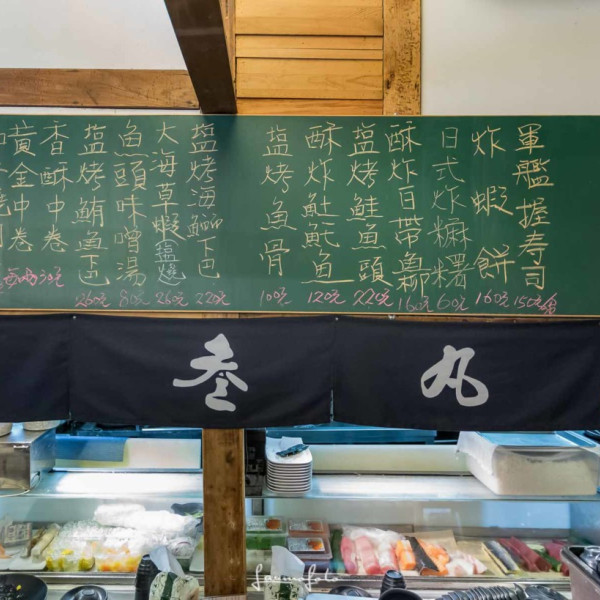 軍艦握寿司
150元
炸蝦餅
160元
日式炸麻糬
60元
酥炸白帶魚柳
160元
塩烤鮭魚頭
220元
酥炸𩵚魠魚
120元
塩烤魚骨
100元
塩烤海鱺下巴
220元
大海草蝦塩燒
260元
魚頭味噌湯
80元
塩烤鮪魚下巴
260元
香酥中卷
黃金中卷
叁丸